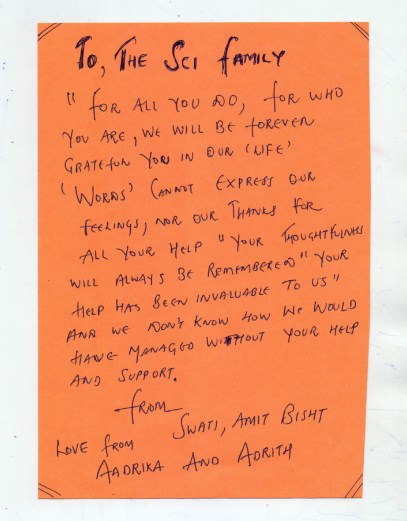 To, THE SCI FAMILY
"FOR ALL YOU DO, FOR WHO
YOU ARE, WE WILL BE FOREVER
GRATEFUL YOU IN OUR 'LIFE'
'WORDS' CANNOT EXPRESS OUR
FEELINGS, NOR OUR THANKS FOR
ALL YOUR HELP "YOUR THOUGHTFULNESS
WILL ALWAYS BE REMEMBERED" YOUR
HELP HAS BEEN INVALUABLE TO US"
AND WE DON'T KNOW HOW WE WOULD
HAVE MANAGED WITHOUT YOUR HELP
AND SUPPORT.
FROM
SWATI, AMIT BISHT
LOVE FROM
AADRIKA AND ADRITH